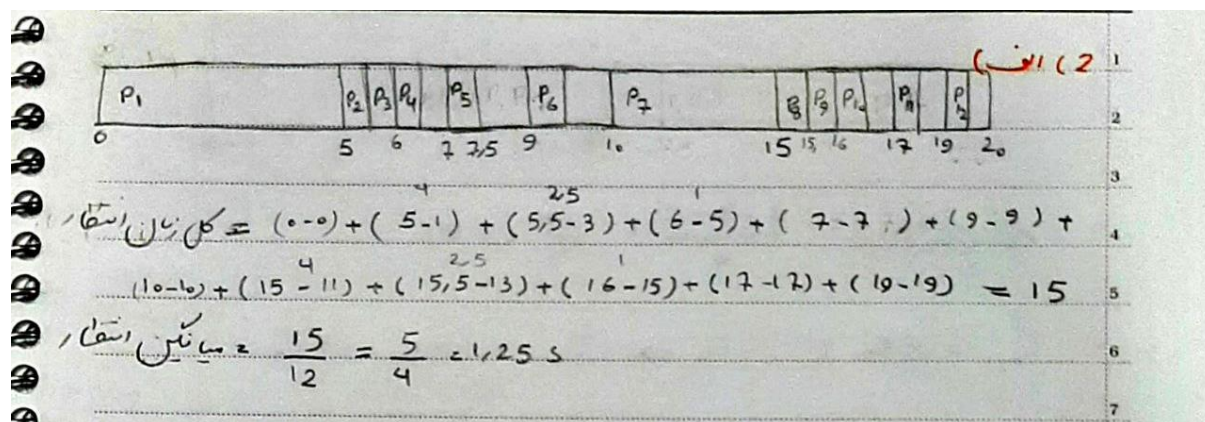 2) الف)
P1 P2 P3 P4 P5 P6 P7 P8 P9 P10 P11 P12
0 5 6 7 7,5 9 10 15 15, 16 17 19 20
4 2,5 1
کل زمان انتظار = (0-0) + (5-1) + (5,5-3) + (6-5) + (7-7) + (9-9) +
4 2,5 1
(10-10) + (15-11) + (15,5-13) + (16-15) + (17-17) + (19-19) = 15
میانگین انتظار = 15/12 = 5/4 = 1,25 s
1
2
3
4
5
6
7